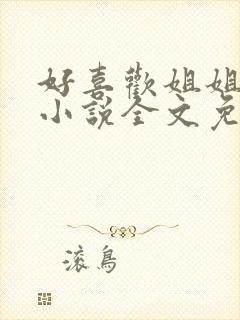 好喜歡姐姐
小說全文免
滚鳥